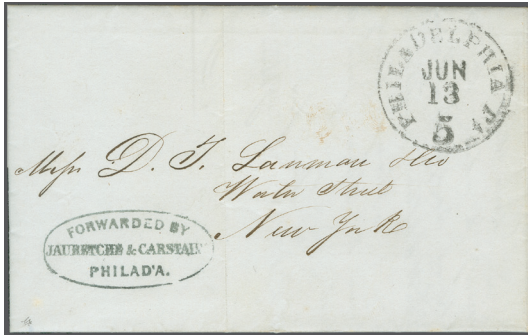 PHILADELPHIA Pa
JUN
13
5
Messrs D. T. Lanman & Co
Water Street
New York
FORWARDED BY
JAURETCHE & CARSTAIR
PHILAD'A.